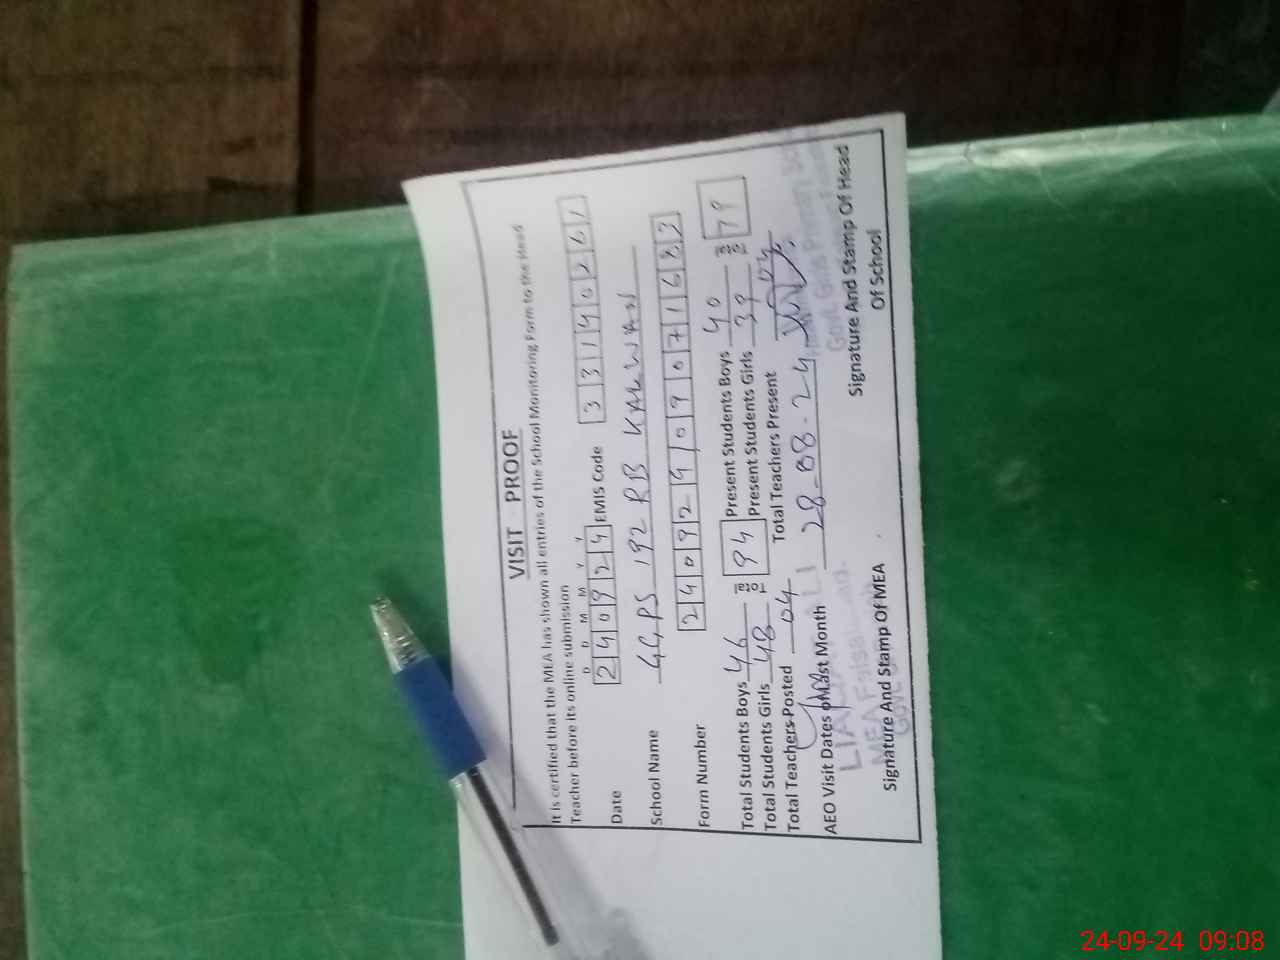 VISIT PROOF
It is certified that the MEA has shown all entries of the School Monitoring Form to the Head
Teacher before its online submission
D D M M Y Y
Date 240924 EMIS Code 33140261
School Name GGPS 192 RB KALWAN
Form Number 240929109071683
Total Students Boys 46 Total 94 Present Students Boys 40 Total 79
Total Students Girls 48 Present Students Girls 39
Total Teachers Posted 04 Total Teachers Present 04
AEO Visit Dates of Last Month 28-08-24
Signature And Stamp Of MEA
Signature And Stamp Of Head
Of School
24-09-24 09:08